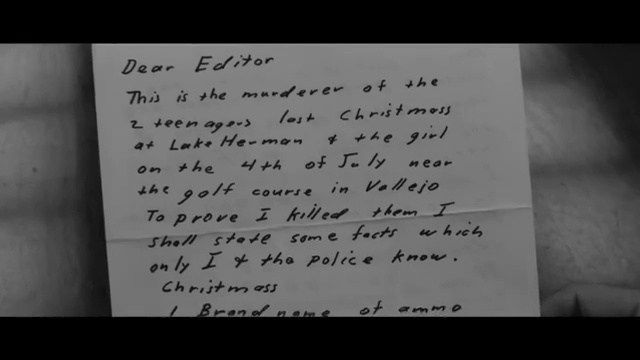 Dear Editor
This is the murderer of the
2 teenagers last Christmass
at Lake Herman & the girl
on the 4th of July near
the golf course in Vallejo
To prove I killed them I
shall state some facts which
only I & the police know.
Christmass
1 Brand name of ammo